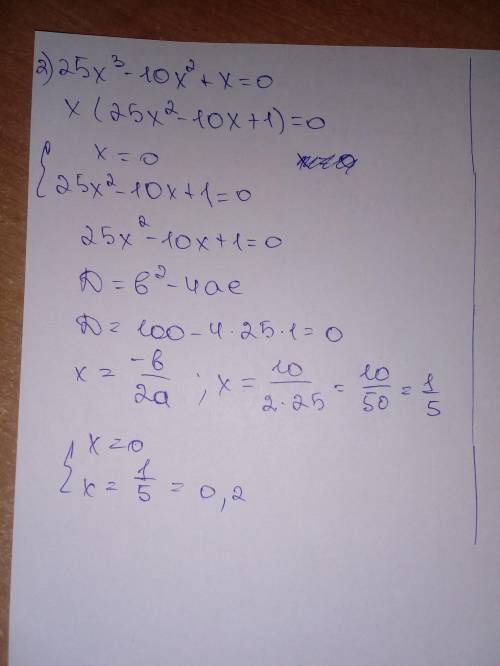 2) 25x³ - 10x² + x = 0
x (25x² - 10x + 1) = 0
{ x = 0
25x² - 10x + 1 = 0
25x² - 10x + 1 = 0
D = b² - 4ac
D = 100 - 4 · 25 · 1 = 0
x = -b/2a ; x = 10/2·25 = 10/50 = 1/5
{ x = 0
x = 1/5 = 0,2